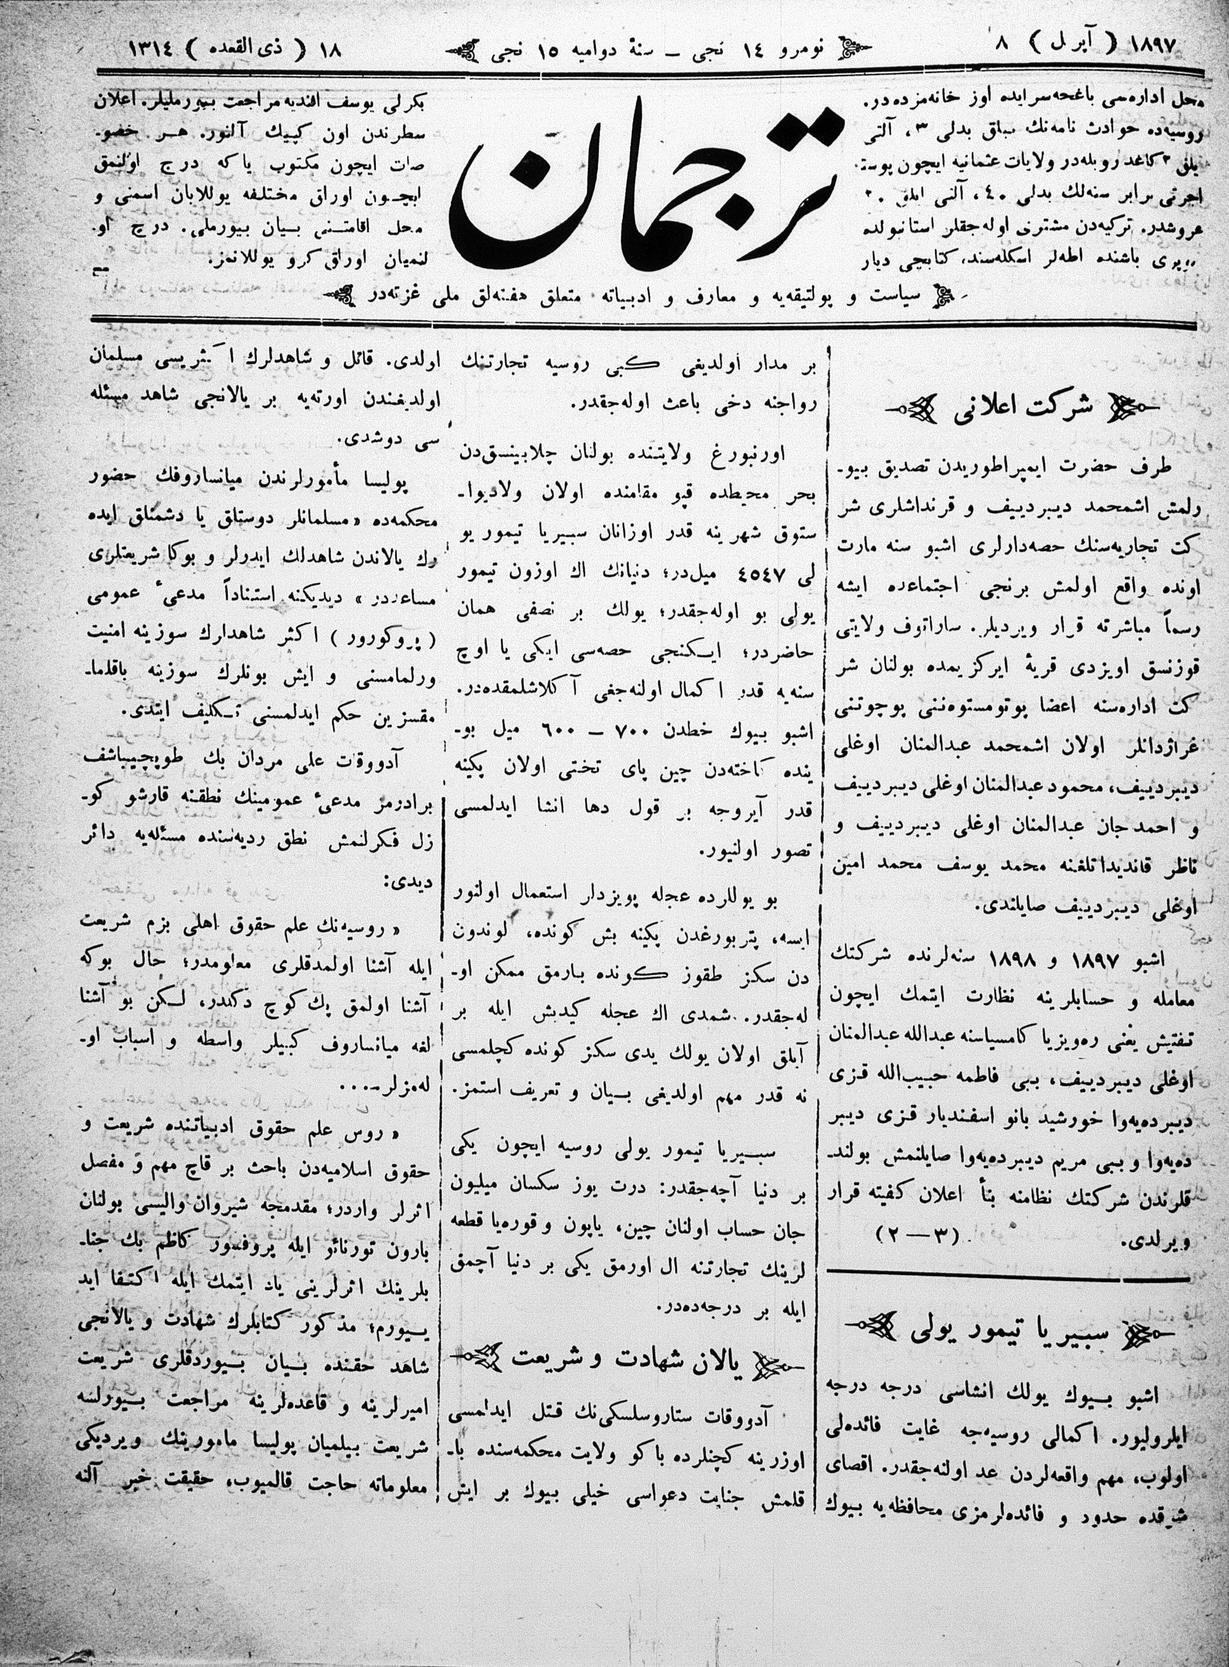 ١٨٩٧ ( آپريل ) ٨
نومرو ١٤ نجی ـ سنهٔ دواميه ١٥ نجی
١٨ ( ذی القعده ) ١٣١٤
محل اداره‌سی باغچه‌سرايده اوز خانه‌مزده‌در.
روسيه‌ده حوادث نامه‌نك سباق بدلی ٣، آلتی
يلق ٢ كاغد روبله‌در ولايات عثمانيه ايچون پوسته
اجرتی برابر سنه‌لك بدلی ٤٠، آلتی ايلق ٢٠
غروشدر. تركيه‌دن مشتری اوله‌جقلر استانبولده
باشنده اطه‌لر اسكله‌سند، كتابچی ديار
ترجمان
بكرلی يوسف افنديه مراجعت بيورمليلر. اعلان
سطرندن اون كپيك آلنور. هر خصو-
صات ايچون مكتوب ياكه درج اولنمق
ايچون اوراق مختلفه يوللايان اسمنی و
محل اقامتنی بيان بيورملی. درج او-
لنميان اوراق كرو يوللانمز.
سياست و پولتيقه‌يه و معارف و ادبياته متعلق هفته‌لق ملی غزته‌در
شركت اعلانی
طرف حضرت ايمپراطوريدن تصديق بيو-
رلمش اشمحمد ديبردييف و قرنداشلری شر
كت تجاريه‌سنك حصه‌دارلری اشبو سنه مارت
اونده واقع اولمش برنجی اجتماعده ايشه
رسماً مباشرته قرار ويرديلر. ساراتوف ولايتی
قوزنسق اويزدی قريهٔ ايركزيمده بولنان شر
كت اداره‌سنه اعضا پوتومستوه‌ننی پوچوتنی
غراژدانلر اولان اشمحمد عبدالمنان اوغلی
ديبردييف، محمود عبدالمنان اوغلی ديبردييف
و احمدجان عبدالمنان اوغلی ديبردييف و
ناظر قانديداتلغنه محمد يوسف محمد امين
اوغلی ديبردييف صايلندی.
اشبو ١٨٩٧ و ١٨٩٨ سنه‌لرنده شركتك
معامله و حسابلرينه نظارت ايتمك ايچون
تفتيش يعنی ره‌ويزيا كامسياسنه عبدالله عبدالمنان
اوغلی ديبردييف، ببی فاطمه حبيب‌الله قزی
ديبرده‌يه‌وا خورشيد بانو اسفنديار قزی ديبر
ده‌يه‌وا و ببی مريم ديبرده‌يه‌وا صايلنمش بولند-
قلرندن شركتك نظامنه بنأ اعلان كفيته قرار
ويرلدی. (٣—٢)
سبيريا تيمور يولی
اشبو بيوك يولك انشاسی درجه درجه
ايلروليور. اكمالی روسيه‌جه غايت فائده‌لی
اولوب، مهم واقعه‌لردن عد اولنه‌جقدر. اقصای
شرقده حدود و فائده‌لرمزی محافظه‌يه بيوك
بر مدار اولديغی كبی روسيه تجارتنك
رواجنه دخی باعث اوله‌جقدر.
اورنبورغ ولايتنده بولنان چلابينسق‌دن
بحر محيطده قپو مقامنده اولان ولاديوا-
ستوق شهرينه قدر اوزانان سبيريا تيمور يو
لی ٤٥٤٧ ميل‌در؛ دنيانك اك اوزون تيمور
يولی بو اوله‌جقدر؛ يولك بر نصفی همان
حاضردر؛ ايكنجی حصه‌سی ايكی يا اوچ
سنه‌يه قدر اكمال اولنه‌جغی آكلاشلمقده‌در.
اشبو بيوك خطدن ٧٠٠ — ٦٠٠ ميل بو-
ينده كاخته‌دن چين پای تختی اولان پكينه
قدر آيروجه بر قول دها انشا ايدلمسی
تصور اولنيور.
بو يوللرده عجله پويزدار استعمال اولنور
ايسه، پتربورغدن پكينه بش كونده، لوندون
دن سكز طقوز كونده بارمق ممكن او-
له‌جقدر. شمدی اك عجله كيدش ايله بر
آيلق اولان يولك يدی سكز كونده كچلمسی
نه قدر مهم اولديغی بيان و تعريف استمز.
سبيريا تيمور يولی روسيه ايچون يكی
بر دنيا آچه‌جقدر: درت يوز سكسان ميليون
جان حساب اولنان چين، ياپون و قوره‌يا قطعه
لرينك تجارتنه ال اورمق يكی بر دنيا آچمق
ايله بر درجه‌ده‌در.
يالان شهادت و شريعت
آدووقات ستاروسلسكی‌نك قتل ايدلمسی
اوزرينه كچنلرده باكو ولايت محكمه‌سنده با-
قلمش جنايت دعواسی خيلی بيوك بر ايش
اولدی. قاتل و شاهدلرك اكثريسی مسلمان
اولديغندن اورته‌يه بر يالانجی شاهد مسئله
سی دوشدی.
پوليسا مأمورلرندن ميانساروفك حضور
محكمه‌ده «مسلمانلر دوستلق يا دشمنلق ايده
رك يالاندن شاهدلك ايدرلر و بوكا شريعتلری
مساعددر» ديديكنه استناداً مدعیٔ عمومی
(پروكورور) اكثر شاهدلرك سوزينه امنيت
ورلمامسنی و ايش بونلرك سوزينه باقلما-
مقسزين حكم ايدلمسنی تكليف ايتدی.
آدووقات علی مردان بك طوپچيباشف
برادرمز مدعیٔ عمومينك نطقنه قارشو كو-
زل فكرلنمش نطق رديه‌سنده مسئله‌يه دائر
ديدی:
«روسيه‌نك علم حقوق اهلی بزم شريعت
ايله آشنا اولمدقلری معلومدر؛ حال بوكه
آشنا اولمق پك كوچ دكلدر، لكن بو آشنا
لغه ميانساروف كبيلر واسطه و اسباب او-
له‌مزلر....
«روس علم حقوق ادبياتنده شريعت و
حقوق اسلاميه‌دن باحث بر قاچ مهم و مفصل
اثرلر واردر؛ مقدمجه شيروان واليسی بولنان
بارون تورنائو ايله پروفسور كاظم بك جنا-
بلرينك اثرلرينی ياد ايتمك ايله اكتفا ايد
ييورم؛ مذكور كتابلرك شهادت و يالانجی
شاهد حقنده بيان بيوردقلری شريعت
اميرلرينه و قاعده‌لرينه مراجعت بيورلسه
شريعت بيلميان پوليسا مامورينك ويرديكی
معلوماته حاجت قالميوب، حقيقت خبر آلنه